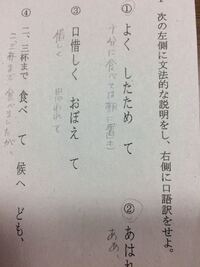 次の左側に文法的な説明をし、右側に口語訳をせよ。
① よく したため て
十分に食べては朝に置き
② あはれ
ああ、
③ 口惜しく おぼえ て
惜しく 思われて
④ 二、三杯まで 食べ て 候へ ども、
二、三杯まで 食べましたが、